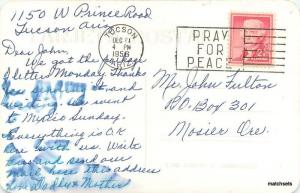 1150 W Prince Road
Tucson Ariz
Dear John,
We got the package
& letter Monday Thanks
for sending it and
writing. We went
to Mexico Sunday.
Everything is O.K.
here with us. Write
and send our
mail here this address
Love Daddy & Mother
TUCSON
DEC 21
4 PM
1956
ARIZ
PRAY
FOR
PEACE
Mr. John Fulton
P.O. Box 301
Mosier Ore.
matchsets